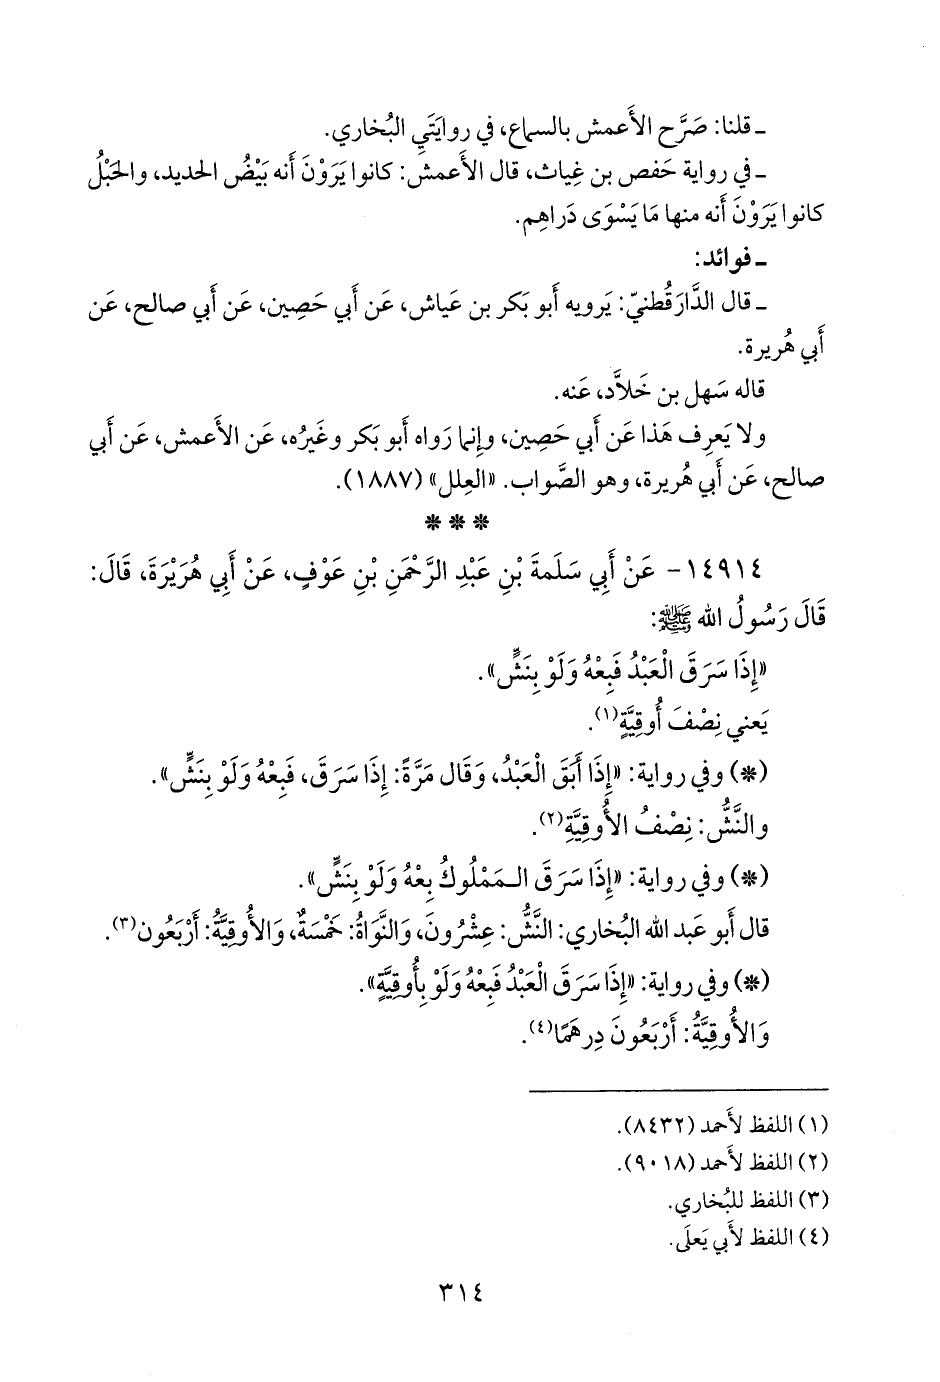 ـ قلنا: صَرَّح الأَعمش بالسماع، في روايَتَيِ البُخاري.
ـ في رواية حَفص بن غِياث، قال الأَعمش: كانوا يَرَوْنَ أَنه بَيْضُ الحديد، والحَبْلُ
كانوا يَرَوْنَ أَنه منها مَا يَسْوَى دَراهِم.
ـ فوائد:
ـ قال الدَّارَقُطنيّ: يَرويه أَبو بَكر بن عَياش، عَن أَبي حَصِين، عَن أَبي صالح، عَن
أَبي هُريرة.
قاله سَهل بن خَلاَّد، عَنه.
ولا يَعرِف هَذا عَن أَبي حَصِين، وإِنما رَواه أَبو بَكر وغَيرُه، عَن الأَعمش، عَن أَبي
صالح، عَن أَبي هُريرة، وهو الصَّواب. «العِلل» (١٨٨٧).
***
١٤٩١٤- عَنْ أَبِي سَلَمةَ بْنِ عَبْدِ الرَّحْمَنِ بْنِ عَوْفٍ، عَنْ أَبِي هُرَيْرَةَ، قَالَ:
قَالَ رَسُولُ الله ﷺ:
«إِذَا سَرَقَ الْعَبْدُ فَبِعْهُ وَلَوْ بِنَشٍّ».
يَعني نِصْفَ أُوقِيَّةٍ(١).
(*) وفي رواية: «إِذَا أَبَقَ الْعَبْدُ، وَقَال مَرَّةً: إِذَا سَرَقَ، فَبِعْهُ وَلَوْ بِنَشٍّ».
والنَّشُّ: نِصْفُ الأُوقِيَّةِ(٢).
(*) وفي رواية: «إِذَا سَرَقَ الـمَمْلُوكُ بِعْهُ وَلَوْ بِنَشٍّ».
قال أَبو عَبد الله البُخاري: النَّشُّ: عِشْرُونَ، وَالنَّوَاةُ: خَمْسَةٌ، وَالأُوقِيَّةُ: أَرْبَعُون(٣).
(*) وفي رواية: «إِذَا سَرَقَ الْعَبْدُ فَبِعْهُ وَلَوْ بِأُوقِيَّةٍ».
وَالأُوقِيَّةُ: أَرْبَعُونَ دِرهَمًا(٤).
(١) اللفظ لأَحمد (٨٤٣٢).
(٢) اللفظ لأَحمد (٩٠١٨).
(٣) اللفظ للبُخاري.
(٤) اللفظ لأَبي يَعلَى.
٣١٤